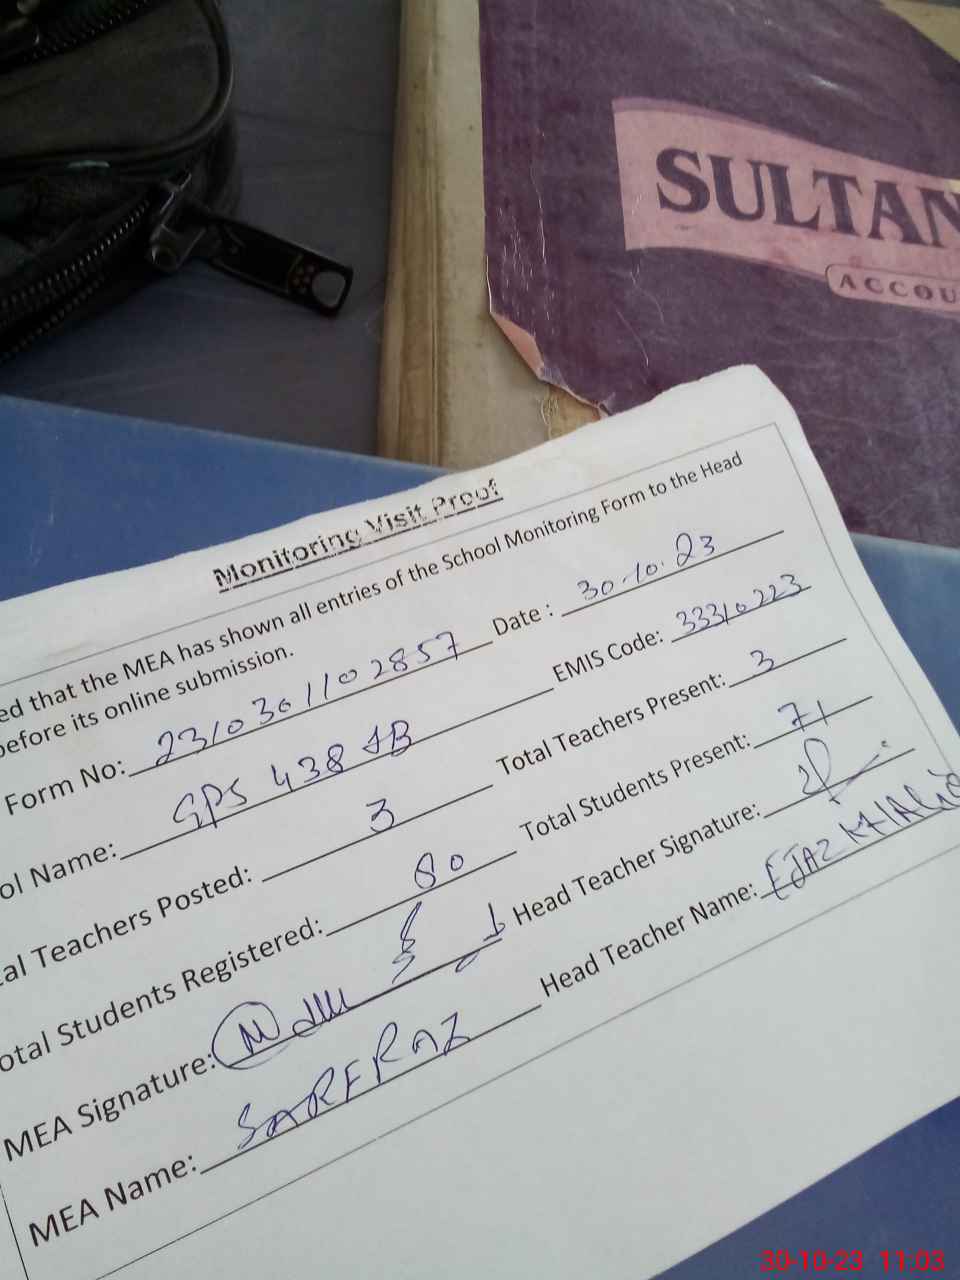 SULTAN
ACCOU
Monitoring Visit Proof
ed that the MEA has shown all entries of the School Monitoring Form to the Head
before its online submission.
Form No: 2310301102857 Date : 30.10.23
ol Name: GPS 438 JB EMIS Code: 33310223
al Teachers Posted: 3 Total Teachers Present: 3
otal Students Registered: 80 Total Students Present: 71
MEA Signature: Head Teacher Signature:
MEA Name: SARFRAZ Head Teacher Name: EJAZ
30-10-23 11:03